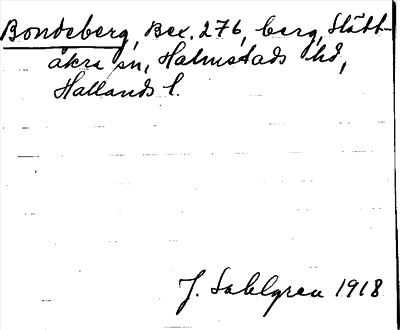 Bondeberg, Bex. 276, berg, Slätt-
åkra sn, Halmstads hd,
Hallands l.
J. Sahlgren 1918